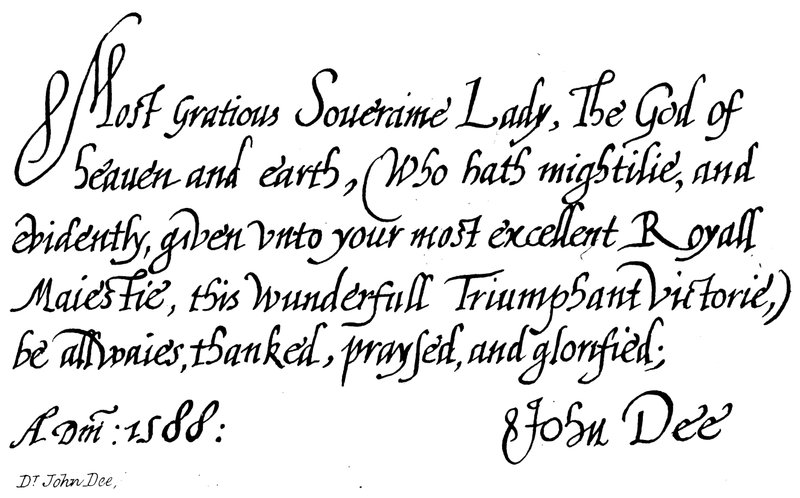 Most Gratious Soueraine Lady, The God of
heauen and earth, (Who hath mightilie, and
evidently, given vnto your most excellent Royall
Maiestie, this wunderfull Triumphant Victorie,)
be allwaies, thanked, praysed, and glorified;
Aº Dm̄: 1588: John Dee
Dr John Dee,